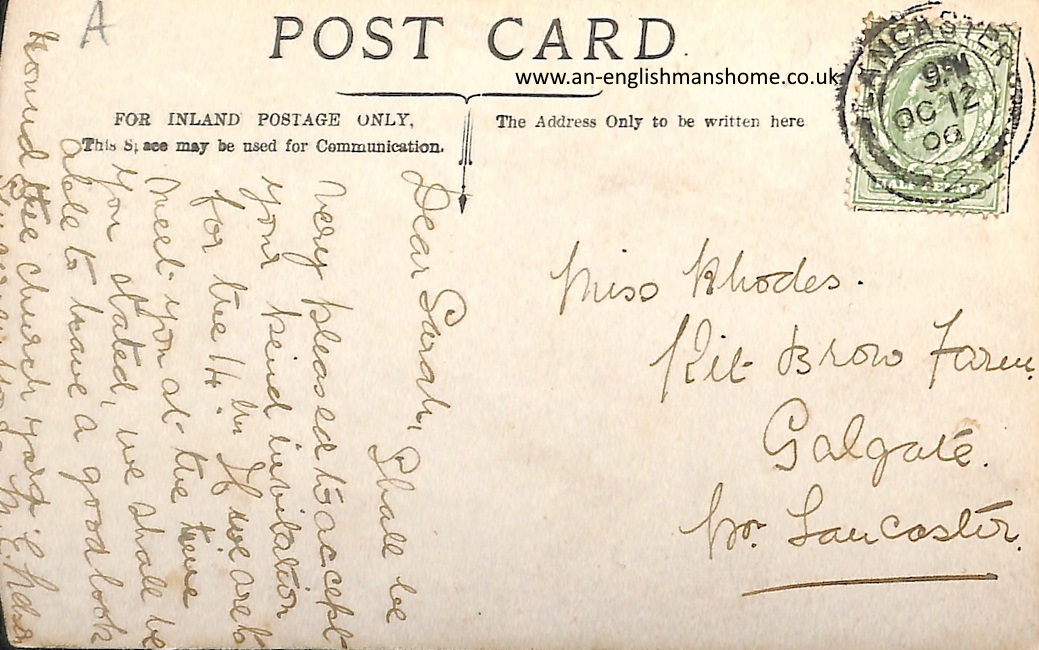 A
POST CARD.
www.an-englishmanshome.co.uk
FOR INLAND POSTAGE ONLY,
This Space may be used for Communication.
The Address Only to be written here
LANCASTER
9 PM
OC 12
09
Dear Sarah, Shall be
very pleased to accept
your kind invitation
for the 14th. If we are to
meet you at the time
you stated, we shall be
able to have a good look
round the church yard.
Miss Rhodes.
Kit Brow Farm,
Galgate.
Nr. Lancaster.